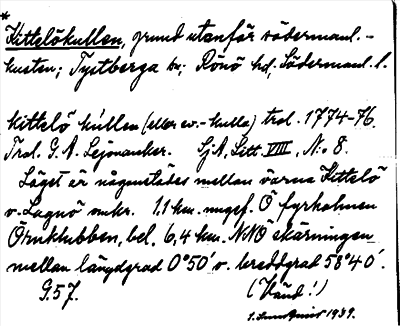 *
Kittelökullen, grund utanför södermanl.-
kusten; Tystberga sn; Rönö hd, Södermanl. l.
kittelö kullen (eller ev. - kulla) trol. 1774-76.
Trol. G. A. Lejonanker. SjA, Litt. VIII, No 8.
Läget är någonstädes mellan öarna Kittelö
o. Lagnö omkr. 1,1 km. ungef. Ö fyrholmen
Örnklubben, bel. 6,4 km. NNÖ skärningen
mellan längdgrad 0°50′ o. breddgrad 58°40′.
G. 57. (Vänd!)
1939.